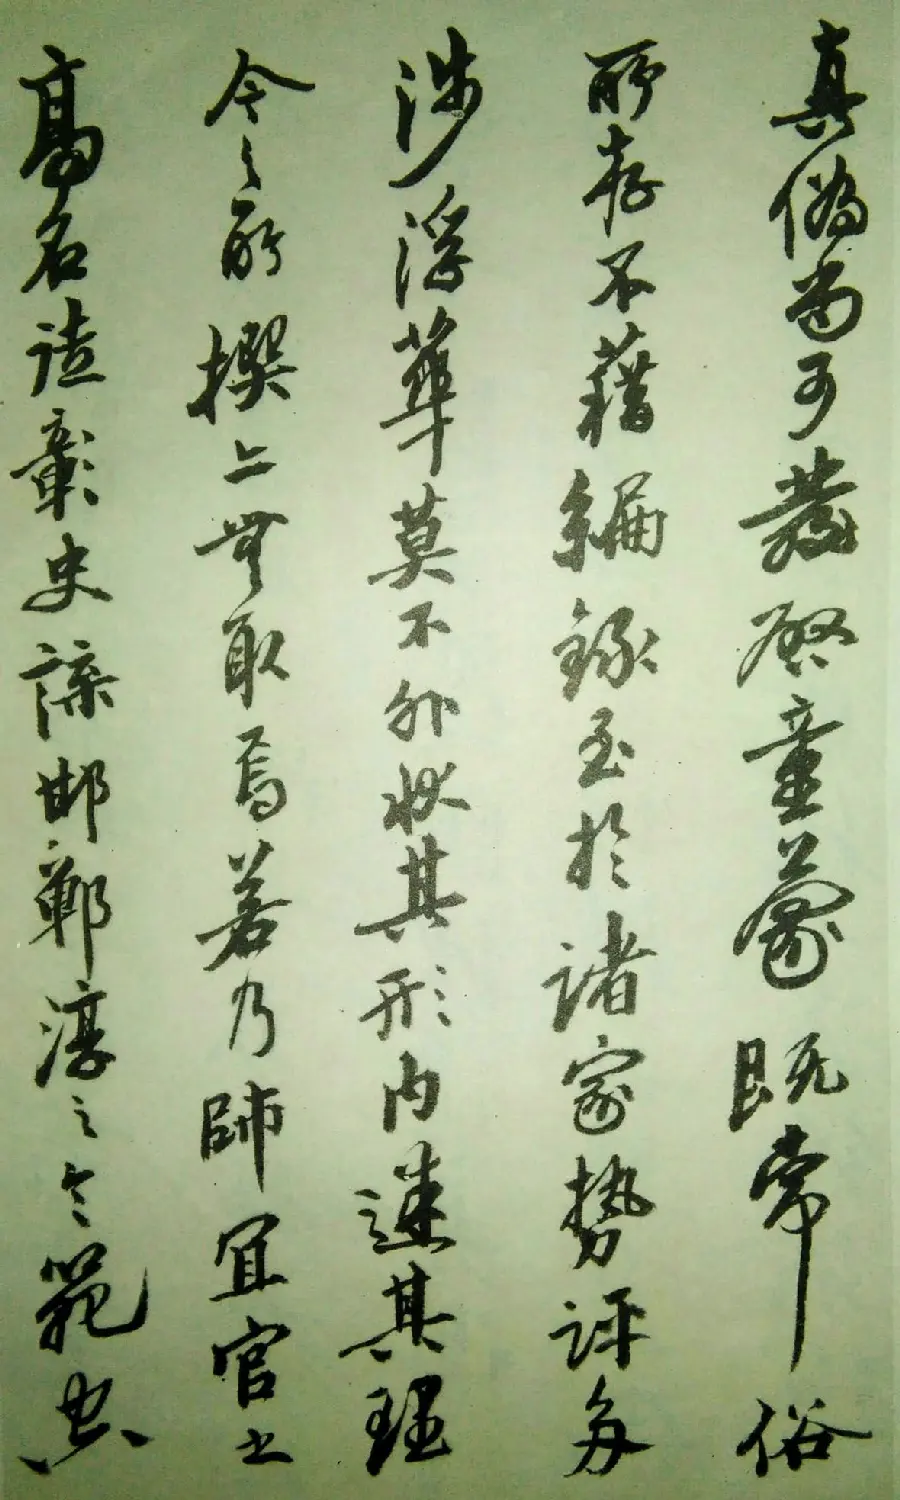 真偽尚可發啓童蒙既常俗
所存不藉編錄至於諸家勢評多
涉浮華莫不外狀其形内迷其理
今之所撰亡無取焉若乃師宜官之
高名徒彰史諜邯鄲淳之令範空